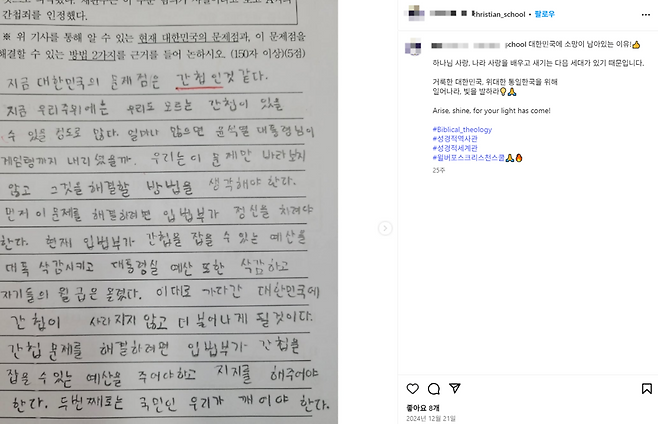 간첩죄를 인정했다.
※ 위 기사를 통해 알 수 있는 현재 대한민국의 문제점과, 이 문제점을
해결할 수 있는 방법 2가지를 근거를 들어 논하시오. (150자 이상)(5점)
지금 대한민국의 문제점은 간첩인것 같다.
지금 우리주위에는 우리도 모르는 간첩이 있을
수 있을 정도로 많다. 얼마나 많으면 윤석열 대통령님이
계엄령까지 내리셨을까. 우리는 이 문제만 바라보지
않고 그것을 해결할 방법을 생각해야 한다.
먼저 이 문제를 해결하려면 입법부가 정신을 차려야
한다. 현재 입법부가 간첩을 잡을 수 있는 예산을
대폭 삭감시키고 대통령실 예산 또한 삭감하고
자기들의 월급은 올렸다. 이대로 가다간 대한민국에
간첩이 사라지지 않고 더 불어나게 될 것이다.
간첩 문제를 해결하려면 입법부가 간첩을
잡을 수 있는 예산을 주어야하고 지지를 해주어야
한다. 두번째로는 국민인 우리가 깨어야 한다.
christian_school • 팔로우
school 대한민국에 소망이 남아있는 이유!👍
하나님 사랑, 나라 사랑을 배우고 새기는 다음 세대가 있기 때문입니다.
거룩한 대한민국, 위대한 통일한국을 위해
일어나라, 빛을 발하라💡🙏
Arise, shine, for your light has come!
#Biblical_theology
#성경적역사관
#성경적세계관
#윌버포스크리스천스쿨🙏🔥
25주
좋아요 8개
2024년 12월 21일